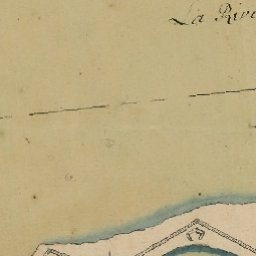 La Riv